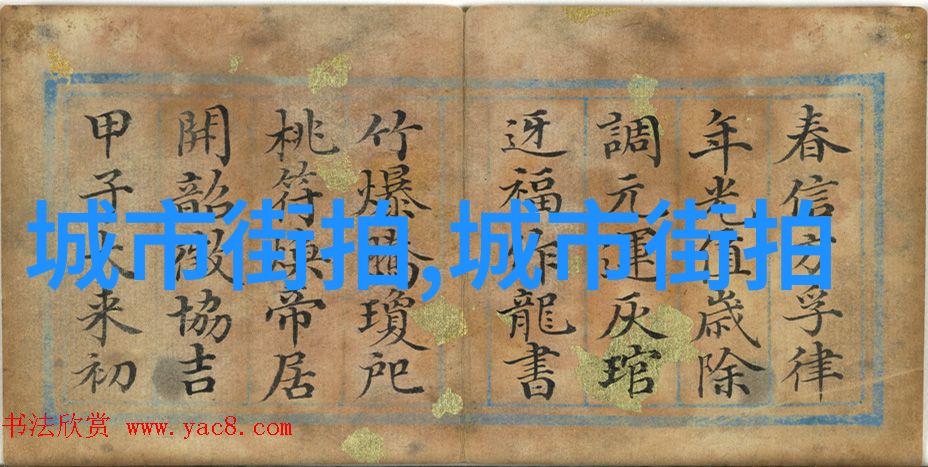 春信方孚律
年光值歲除
調元運灰琯
迓福作龍書
竹爆騰瓊戺
桃符煥帝居
開韶徵協吉
甲子大来初
城市街拍,城市街拍
书法欣赏 www.yac8.com